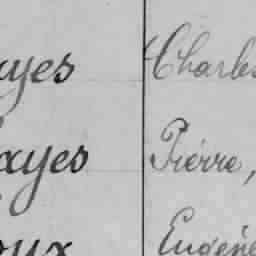 ayes Charles
xayes Pierre,
oux Eugène